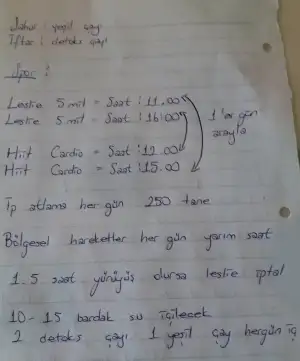 Sahur : yeşil çayı
İftar : detoks çayı
Spor :
Leslie 5 mil = Saat : 11.00
Leslie 5 mil - Saat : 16:00
1'er gün
arayla
Hiit Cardio = Saat : 12.00
Hiit Cardio = Saat : 15.00
İp atlama her gün 250 tane
Bölgesel hareketler her gün yarım saat
1.5 saat yürüyüş olursa leslie iptal
10-15 bardak su içilecek
2 detoks çayı 1 yeşil çay hergün iç